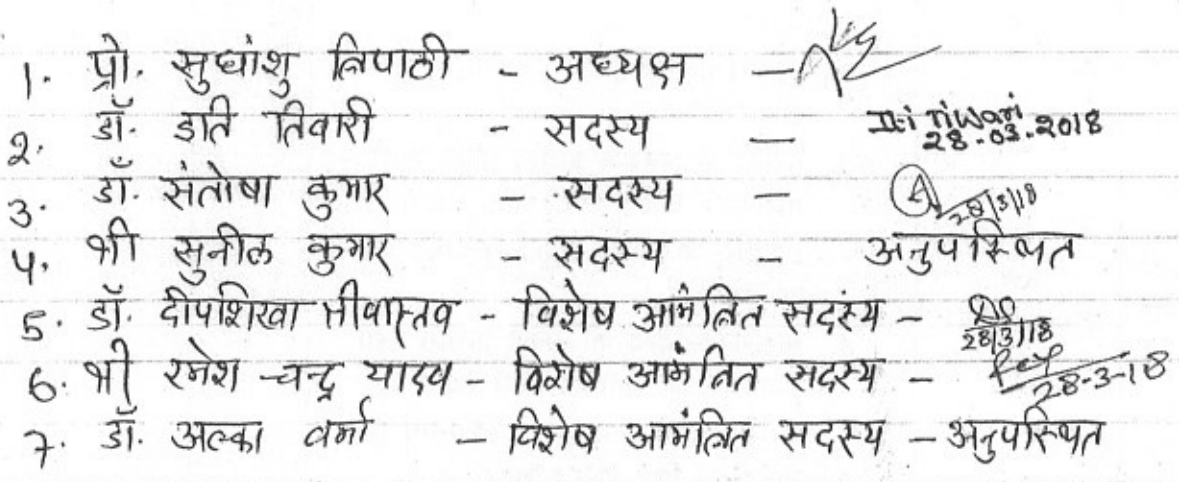 1. प्रो. सुधांशु त्रिपाठी - अध्यक्ष -
2. डॉ. इति तिवारी - सदस्य - Iti Tiwari 28.03.2018
3. डॉ. संतोषा कुमार - सदस्य - 28/3/18
4. श्री सुनील कुमार - सदस्य - अनुपस्थित
5. डॉ. दीपशिखा श्रीवास्तव - विशेष आमंत्रित सदस्य - 28/3/18
6. श्री रमेश चन्द्र यादव - विशेष आमंत्रित सदस्य - 28-3-18
7. डॉ. अल्का वर्मा - विशेष आमंत्रित सदस्य - अनुपस्थित